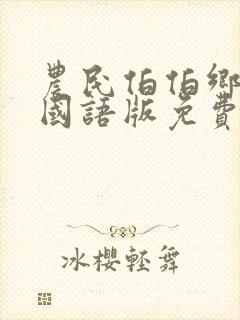 農民伯伯鄉
國語版免費
冰櫻輕舞